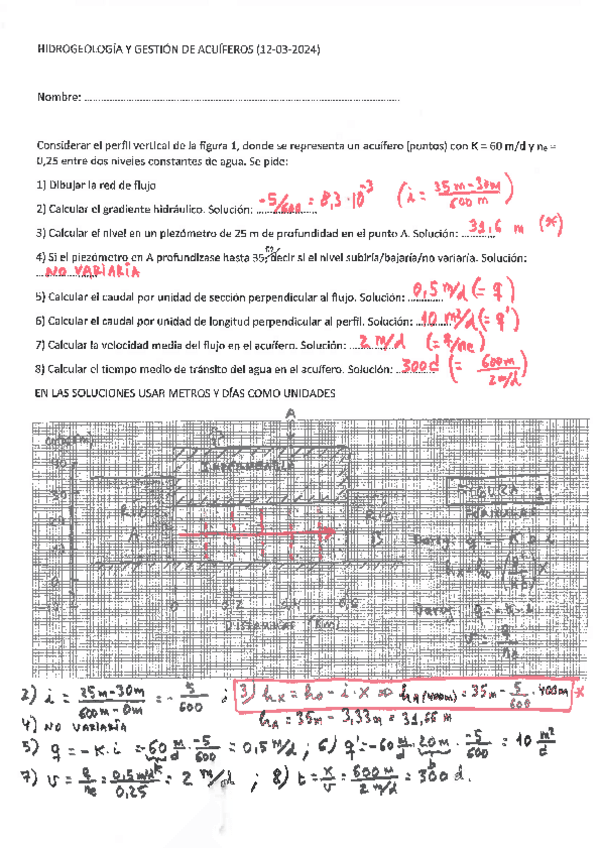 HIDROGEOLOGÍA Y GESTIÓN DE ACUÍFEROS (12-03-2024)
Nombre: ..........
Considerar el perfil vertical de la figura 1, donde se representa un acuífero (puntos) con K = 60 m/d y ne =
0,25 entre dos niveles constantes de agua. Se pide:
1) Dibujar la red de flujo
2) Calcular el gradiente hidráulico. Solución: -5/600 = 8,3·10⁻³ (i = 35m-30m / 600m)
3) Calcular el nivel en un piezómetro de 25 m de profundidad en el punto A. Solución: 31,6 m (*)
4) Si el piezómetro en A profundizase hasta 35, decir si el nivel subiría/bajaría/no variaría. Solución:
NO VARIARÍA
5) Calcular el caudal por unidad de sección perpendicular al flujo. Solución: 0,5 m/d (= q)
6) Calcular el caudal por unidad de longitud perpendicular al perfil. Solución: 10 m²/d (= q')
7) Calcular la velocidad media del flujo en el acuífero. Solución: 2 m/d (= q/ne)
8) Calcular el tiempo medio de tránsito del agua en el acuífero. Solución: 300d (= 600m / 2m/d)
EN LAS SOLUCIONES USAR METROS Y DÍAS COMO UNIDADES
A
IMPERMEABLE
FIGURA 1
RIO A
RIO B
0 0,2 0,6
Distancias (Km)
2) i = 35m-30m / 600m-0m = - 5/600 ; 3) hx = ho - i·x => hA(400m) = 35m - 5/600 · 400m *
hA = 35m - 3,33m = 31,66 m
4) NO VARIARÍA
5) q = -K·i = -60 m/d · -5/600 = 0,5 m/d ; 6) q' = -60 m/d · 20m · -5/600 = 10 m²/d
7) v = q/ne = 0,5 m/d / 0,25 = 2 m/d ; 8) t = x/v = 600m / 2 m/d = 300 d.